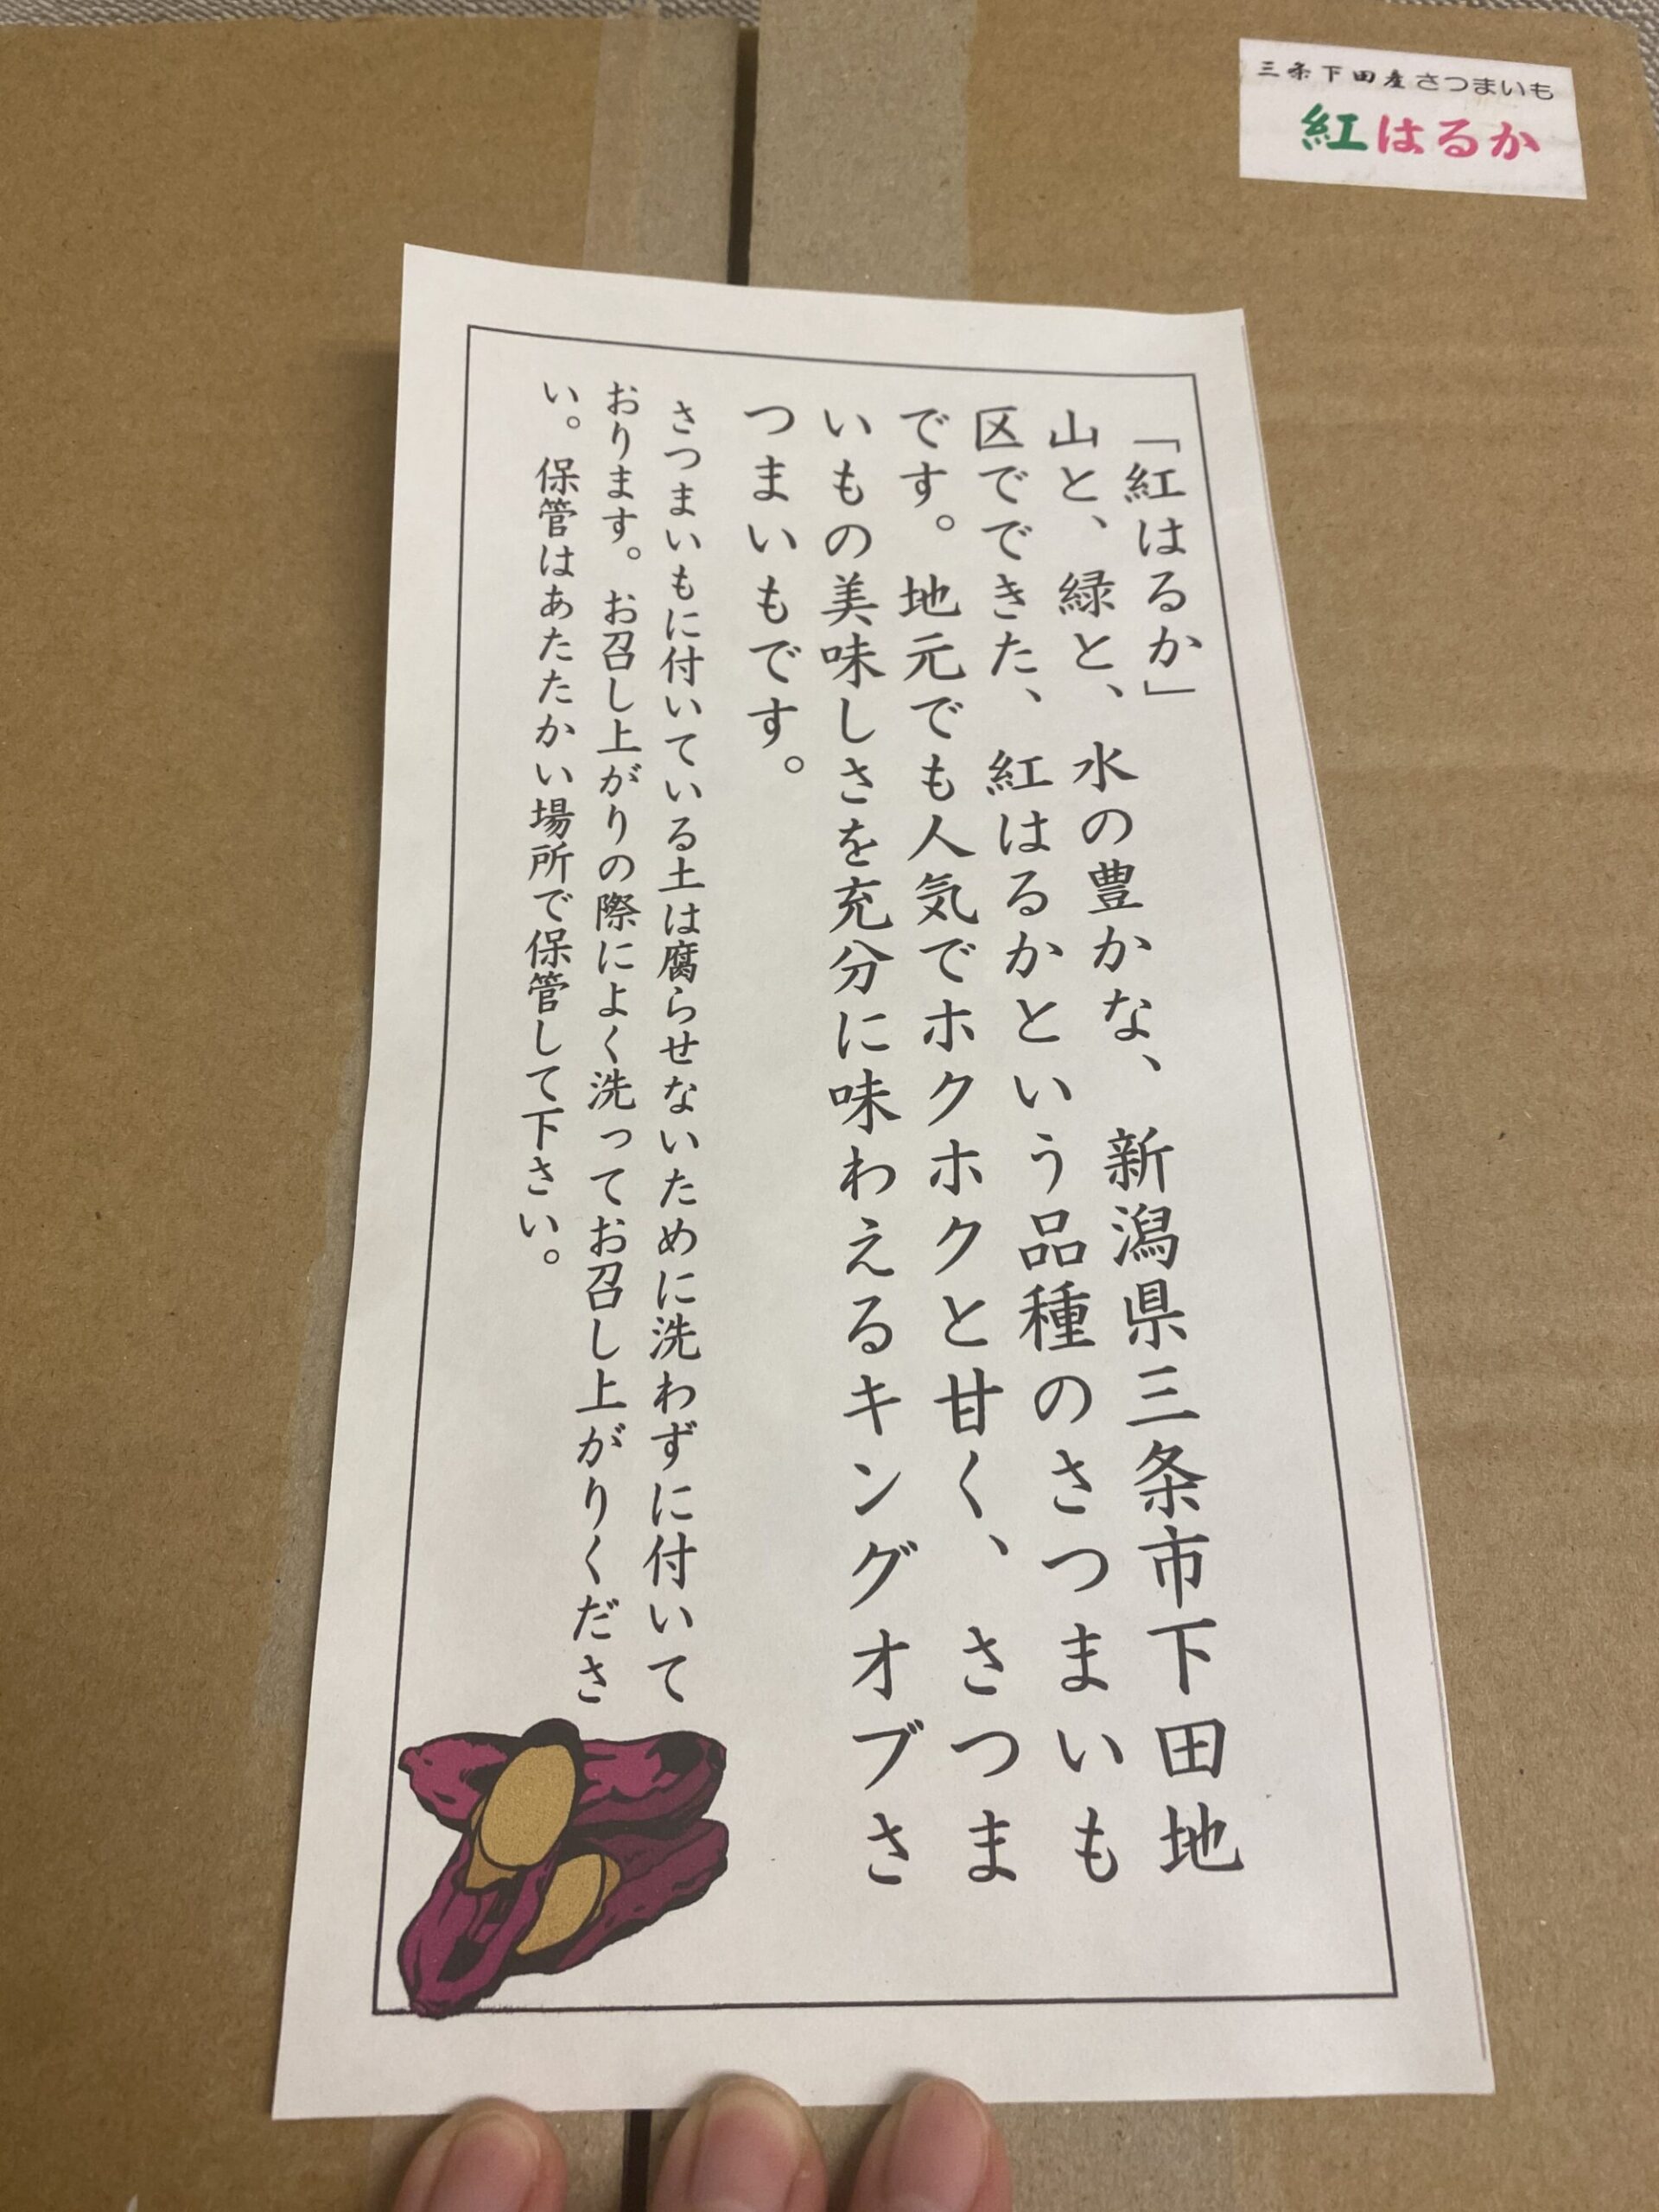 三条下田産さつまいも
紅はるか
「紅はるか」
山と、緑と、水の豊かな、新潟県三条市下田地
区でできた、紅はるかという品種のさつまいも
です。地元でも人気でホクホクと甘く、さつま
いもの美味しさを充分に味わえるキングオブさ
つまいもです。
さつまいもに付いている土は腐らせないために洗わずに付いて
おります。お召し上がりの際によく洗ってお召し上がりくださ
い。保管はあたたかい場所で保管して下さい。